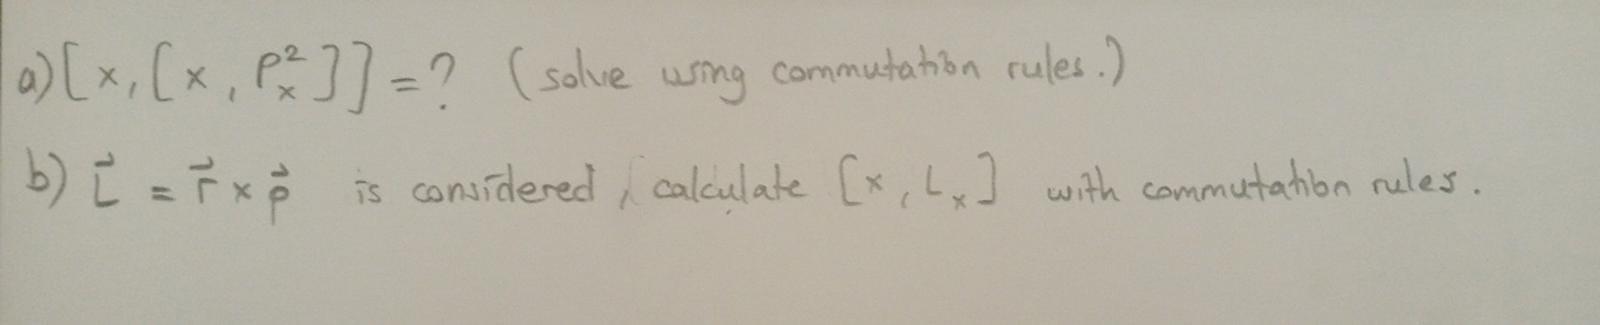 a) [x, [x, P_x^2]] = ? (solve using commutation rules.)
b) \vec{L} = \vec{r} × \vec{p} is considered, calculate [x, L_x] with commutation rules.